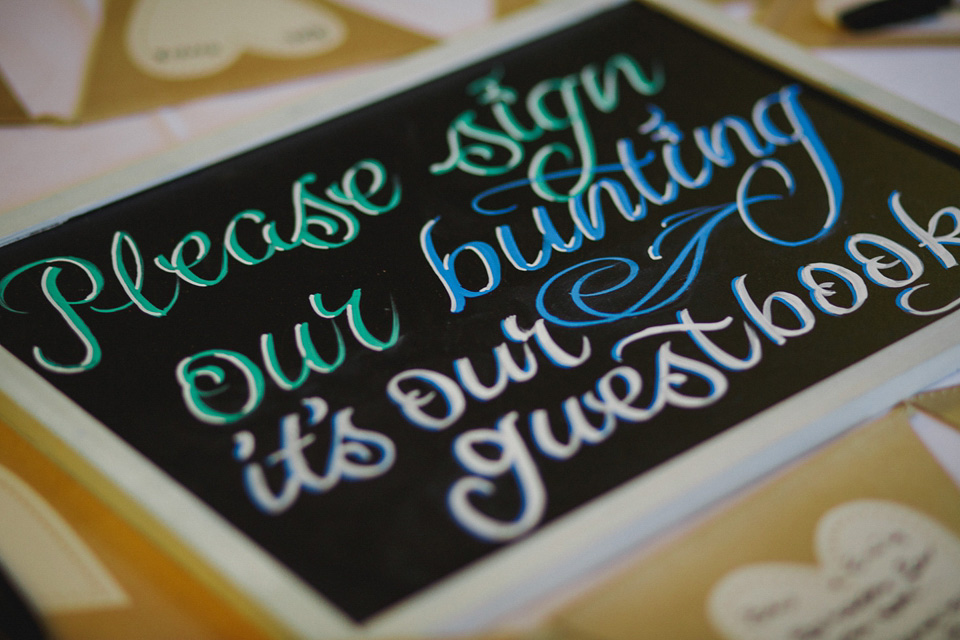 Please sign
our bunting
it's our
guestbook